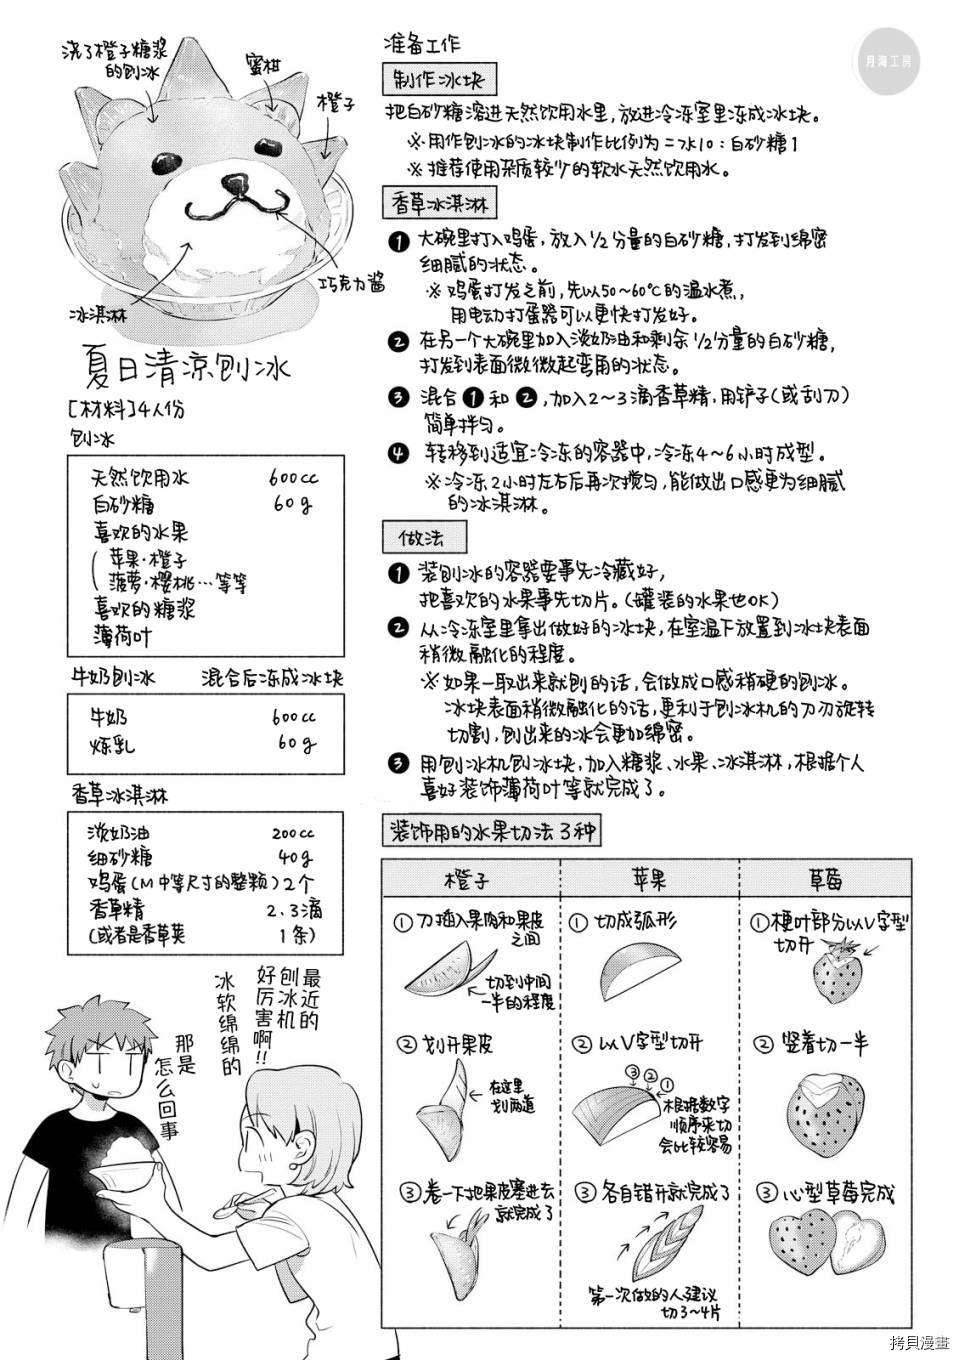 浇了橙子糖浆
的刨冰
蜜柑
橙子
巧克力酱
冰淇淋
夏日清凉刨冰
[材料]4人份
刨冰
天然饮用水 600cc
白砂糖 60g
喜欢的水果
(苹果·橙子
菠萝·樱桃…等等
喜欢的糖浆
薄荷叶
牛奶刨冰 混合后冻成冰块
牛奶 600cc
炼乳 60g
香草冰淇淋
淡奶油 200cc
细砂糖 40g
鸡蛋(M中等尺寸的整颗)2个
香草精 2.3滴
(或者是香草荚 1条)
最近的
刨冰机
好厉害啊!!
冰软绵绵的
那是
怎么回事
月海工房
准备工作
制作冰块
把白砂糖溶进天然饮用水里,放进冷冻室里冻成冰块。
※用作刨冰的冰块制作比例为=水10:白砂糖1
※推荐使用杂质较少的软水天然饮用水。
香草冰淇淋
❶大碗里打入鸡蛋,放入1/2分量的白砂糖,打发到绵密
细腻的状态。
※鸡蛋打发之前,先以50~60℃的温水煮,
用电动打蛋器可以更快打发好。
❷在另一个大碗里加入淡奶油和剩余1/2分量的白砂糖,
打发到表面微微起弯角的状态。
❸混合❶和❷,加入2~3滴香草精,用铲子(或刮刀)
简单拌匀。
❹转移到适宜冷冻的容器中,冷冻4~6小时成型。
※冷冻2小时左右后再次搅匀,能做出口感更为细腻
的冰淇淋。
做法
❶装刨冰的容器要事先冷藏好,
把喜欢的水果事先切片。(罐装的水果也OK)
❷从冷冻室里拿出做好的冰块,在室温下放置到冰块表面
稍微融化的程度。
※如果一取出来就刨的话,会做成口感稍硬的刨冰。
冰块表面稍微融化的话,更利于刨冰机的刀刃旋转
切割,刨出来的冰会更加绵密。
❸用刨冰机刨冰块,加入糖浆、水果、冰淇淋,根据个人
喜好装饰薄荷叶等就完成了。
装饰用的水果切法3种
橙子
①刀插入果肉和果皮
之间
切到中间
一半的程度
②划开果皮
在这里
划两道
③卷一下把果皮塞进去
就完成了
苹果
①切成弧形
②以V字型切开
③②①
根据数字
顺序来切
会比较容易
③各自错开就完成了
第一次做的人建议
切3~4片
草莓
①梗叶部分以V字型
切开
②竖着切一半
③心型草莓完成
拷貝漫畫